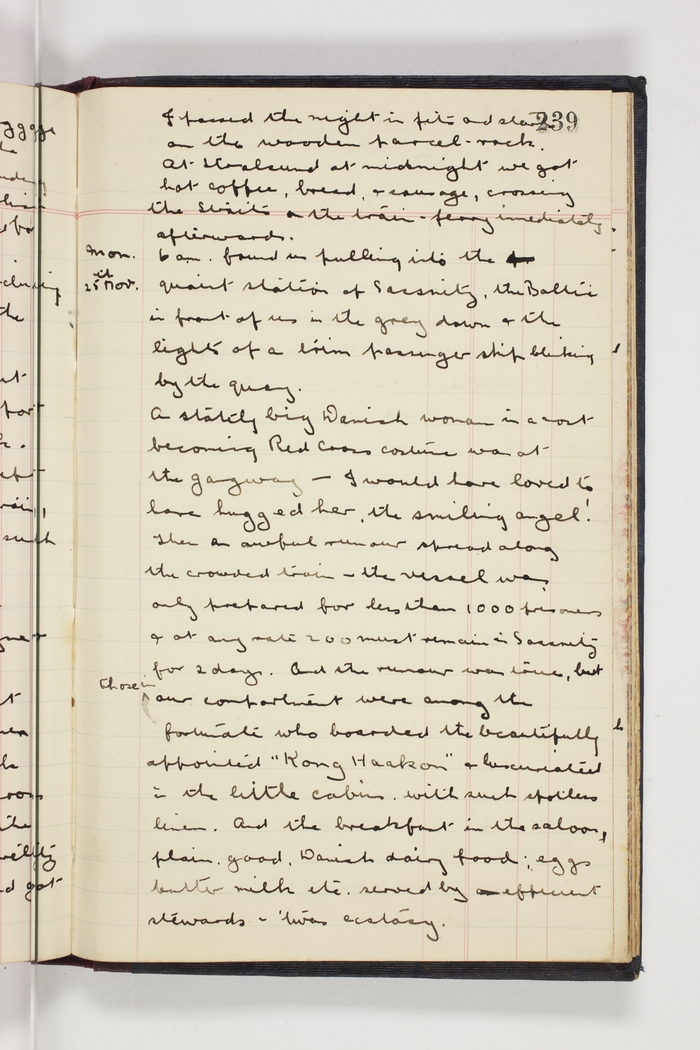 239
I passed the night in fits and starts
on the wooden parcel-rack.
At Stralsund at midnight we got
hot coffee, bread, & sausage, crossing
the Straits on the train-ferry immediately
afterwards.
Mon. 25th Nov. 6 am. found us pulling into the
quaint station of Sassnitz, the Baltic
in front of us in the grey dawn & the
lights of a trim passenger ship blinking
by the quay.
A stately big Danish woman in a most
becoming Red Cross costume was at
the gangway — I would have loved to
have hugged her, the smiling angel!
Then an awful rumour spread along
the crowded train - the vessel was
only prepared for less than 1000 prisoners
& at any rate 200 must remain in Sassnitz
for 2 days. And the rumour was true, but
those in our compartment were among the
fortunate who boarded the beautifully
appointed "Kong Haakon" & luxuriated
in the little cabins. with such spotless
linen. And the breakfast in the saloon,
plain. good. Danish dairy food; eggs
butter milk etc. served by efficient
stewards - 'twas ecstasy.